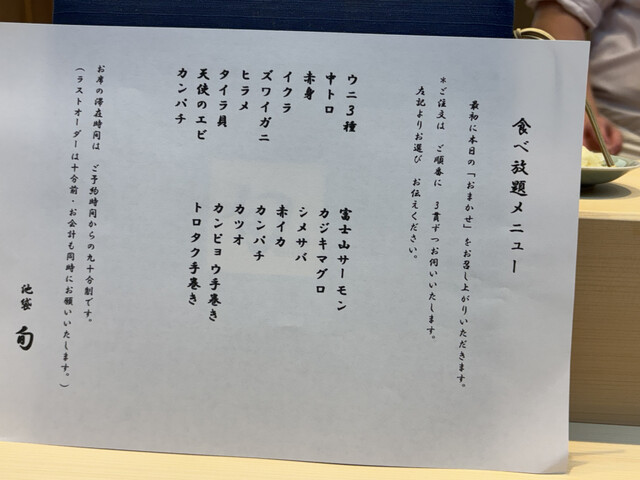 食べ放題メニュー
最初に本日の「おまかせ」をお召し上がりいただきます。
＊ご注文は ご順番に 3貫ずつお伺いいたします。
左記よりお選び お伝えください。
ウニ3種
中トロ
赤身
イクラ
ズワイガニ
ヒラメ
タイラ貝
天使のエビ
カンパチ
富士山サーモン
カジキマグロ
シメサバ
赤イカ
カンパチ
カツオ
カンピョウ手巻き
トロタク手巻き
お席の滞在時間は ご予約時間からの九十分制です。
（ラストオーダーは十分前・お会計も同時にお願いいたします。）
池袋 旬